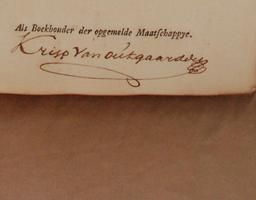 Als Boekhouder der opgemelde Maatſchappye.
Krisp Van outgaarden